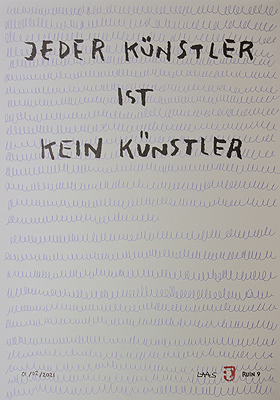 JEDER KÜNSTLER
IST
KEIN KÜNSTLER
01/02/2021 LAAS RUIN 9